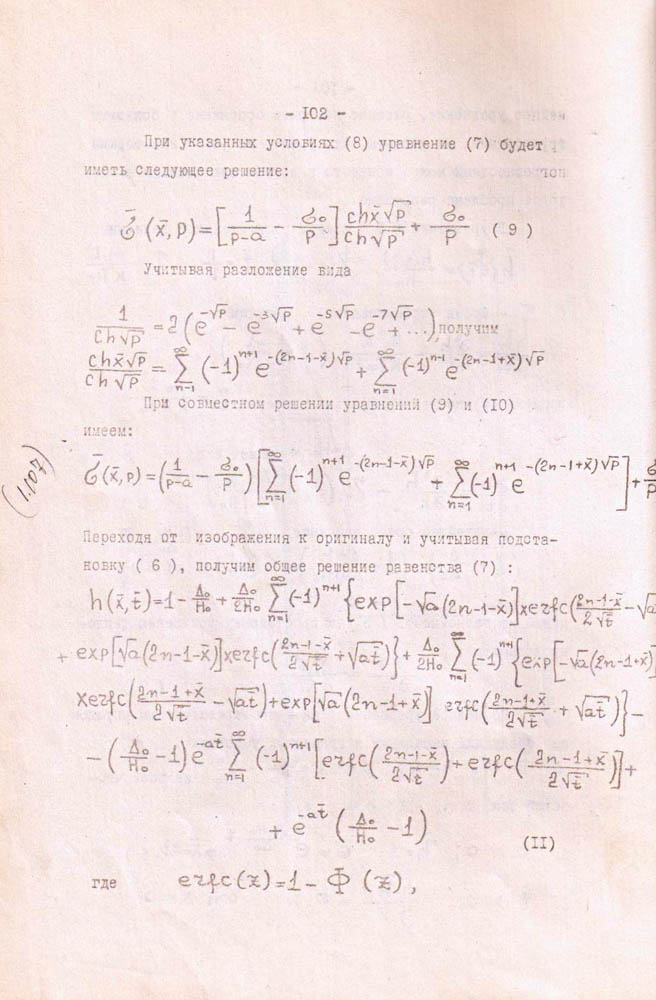 - 102 -
При указанных условиях (8) уравнение (7) будет
иметь следующее решение:
σ̄(x̄,p)=[1/(p-a) - σ₀/p] chx̄√p/ch√p + σ₀/p (9)
Учитывая разложение вида
1/ch√p = 2(e^(-√p) - e^(-3√p) + e^(-5√p) - e^(-7√p) + ...), получим
chx̄√p/ch√p = ∑_(n=1)^∞ (-1)^(n+1) e^(-(2n-1-x̄)√p) + ∑_(n=1)^∞ (-1)^(n-1) e^(-(2n-1+x̄)√p)
При совместном решении уравнений (9) и (10)
имеем:
(1.107)
σ̄(x̄,p)=(1/(p-a) - σ₀/p)[∑_(n=1)^∞ (-1)^(n+1) e^(-(2n-1-x̄)√p) + ∑_(n=1)^∞ (-1)^(n+1) e^(-(2n-1+x̄)√p)] + σ₀/p
Переходя от изображения к оригиналу и учитывая подста-
новку ( 6 ), получим общее решение равенства (7) :
h(x̄,t̄)=1- Δ₀/H₀ + Δ₀/2H₀ ∑_(n=1)^∞ (-1)^(n+1) {exp[-√a(2n-1-x̄)]xerfc((2n-1-x̄)/2√t̄ - √a
+ exp[√a(2n-1-x̄)]xerfc((2n-1-x̄)/2√t̄ + √at̄)} + Δ₀/2H₀ ∑_(n=1)^∞ (-1)^(n+1) {exp[-√a(2n-1+x̄)]
xerfc((2n-1+x̄)/2√t̄ - √at̄)+exp[√a(2n-1+x̄)] erfc((2n-1+x̄)/2√t̄ + √at̄)} -
- (Δ₀/H₀ - 1)e^(-at̄) ∑_(n=1)^∞ (-1)^(n+1) [erfc((2n-1-x̄)/2√t̄)+erfc((2n-1+x̄)/2√t̄)] +
+ e^(-at̄) (Δ₀/H₀ - 1) (II)
где erfc(z)=1- Φ̄ (z),